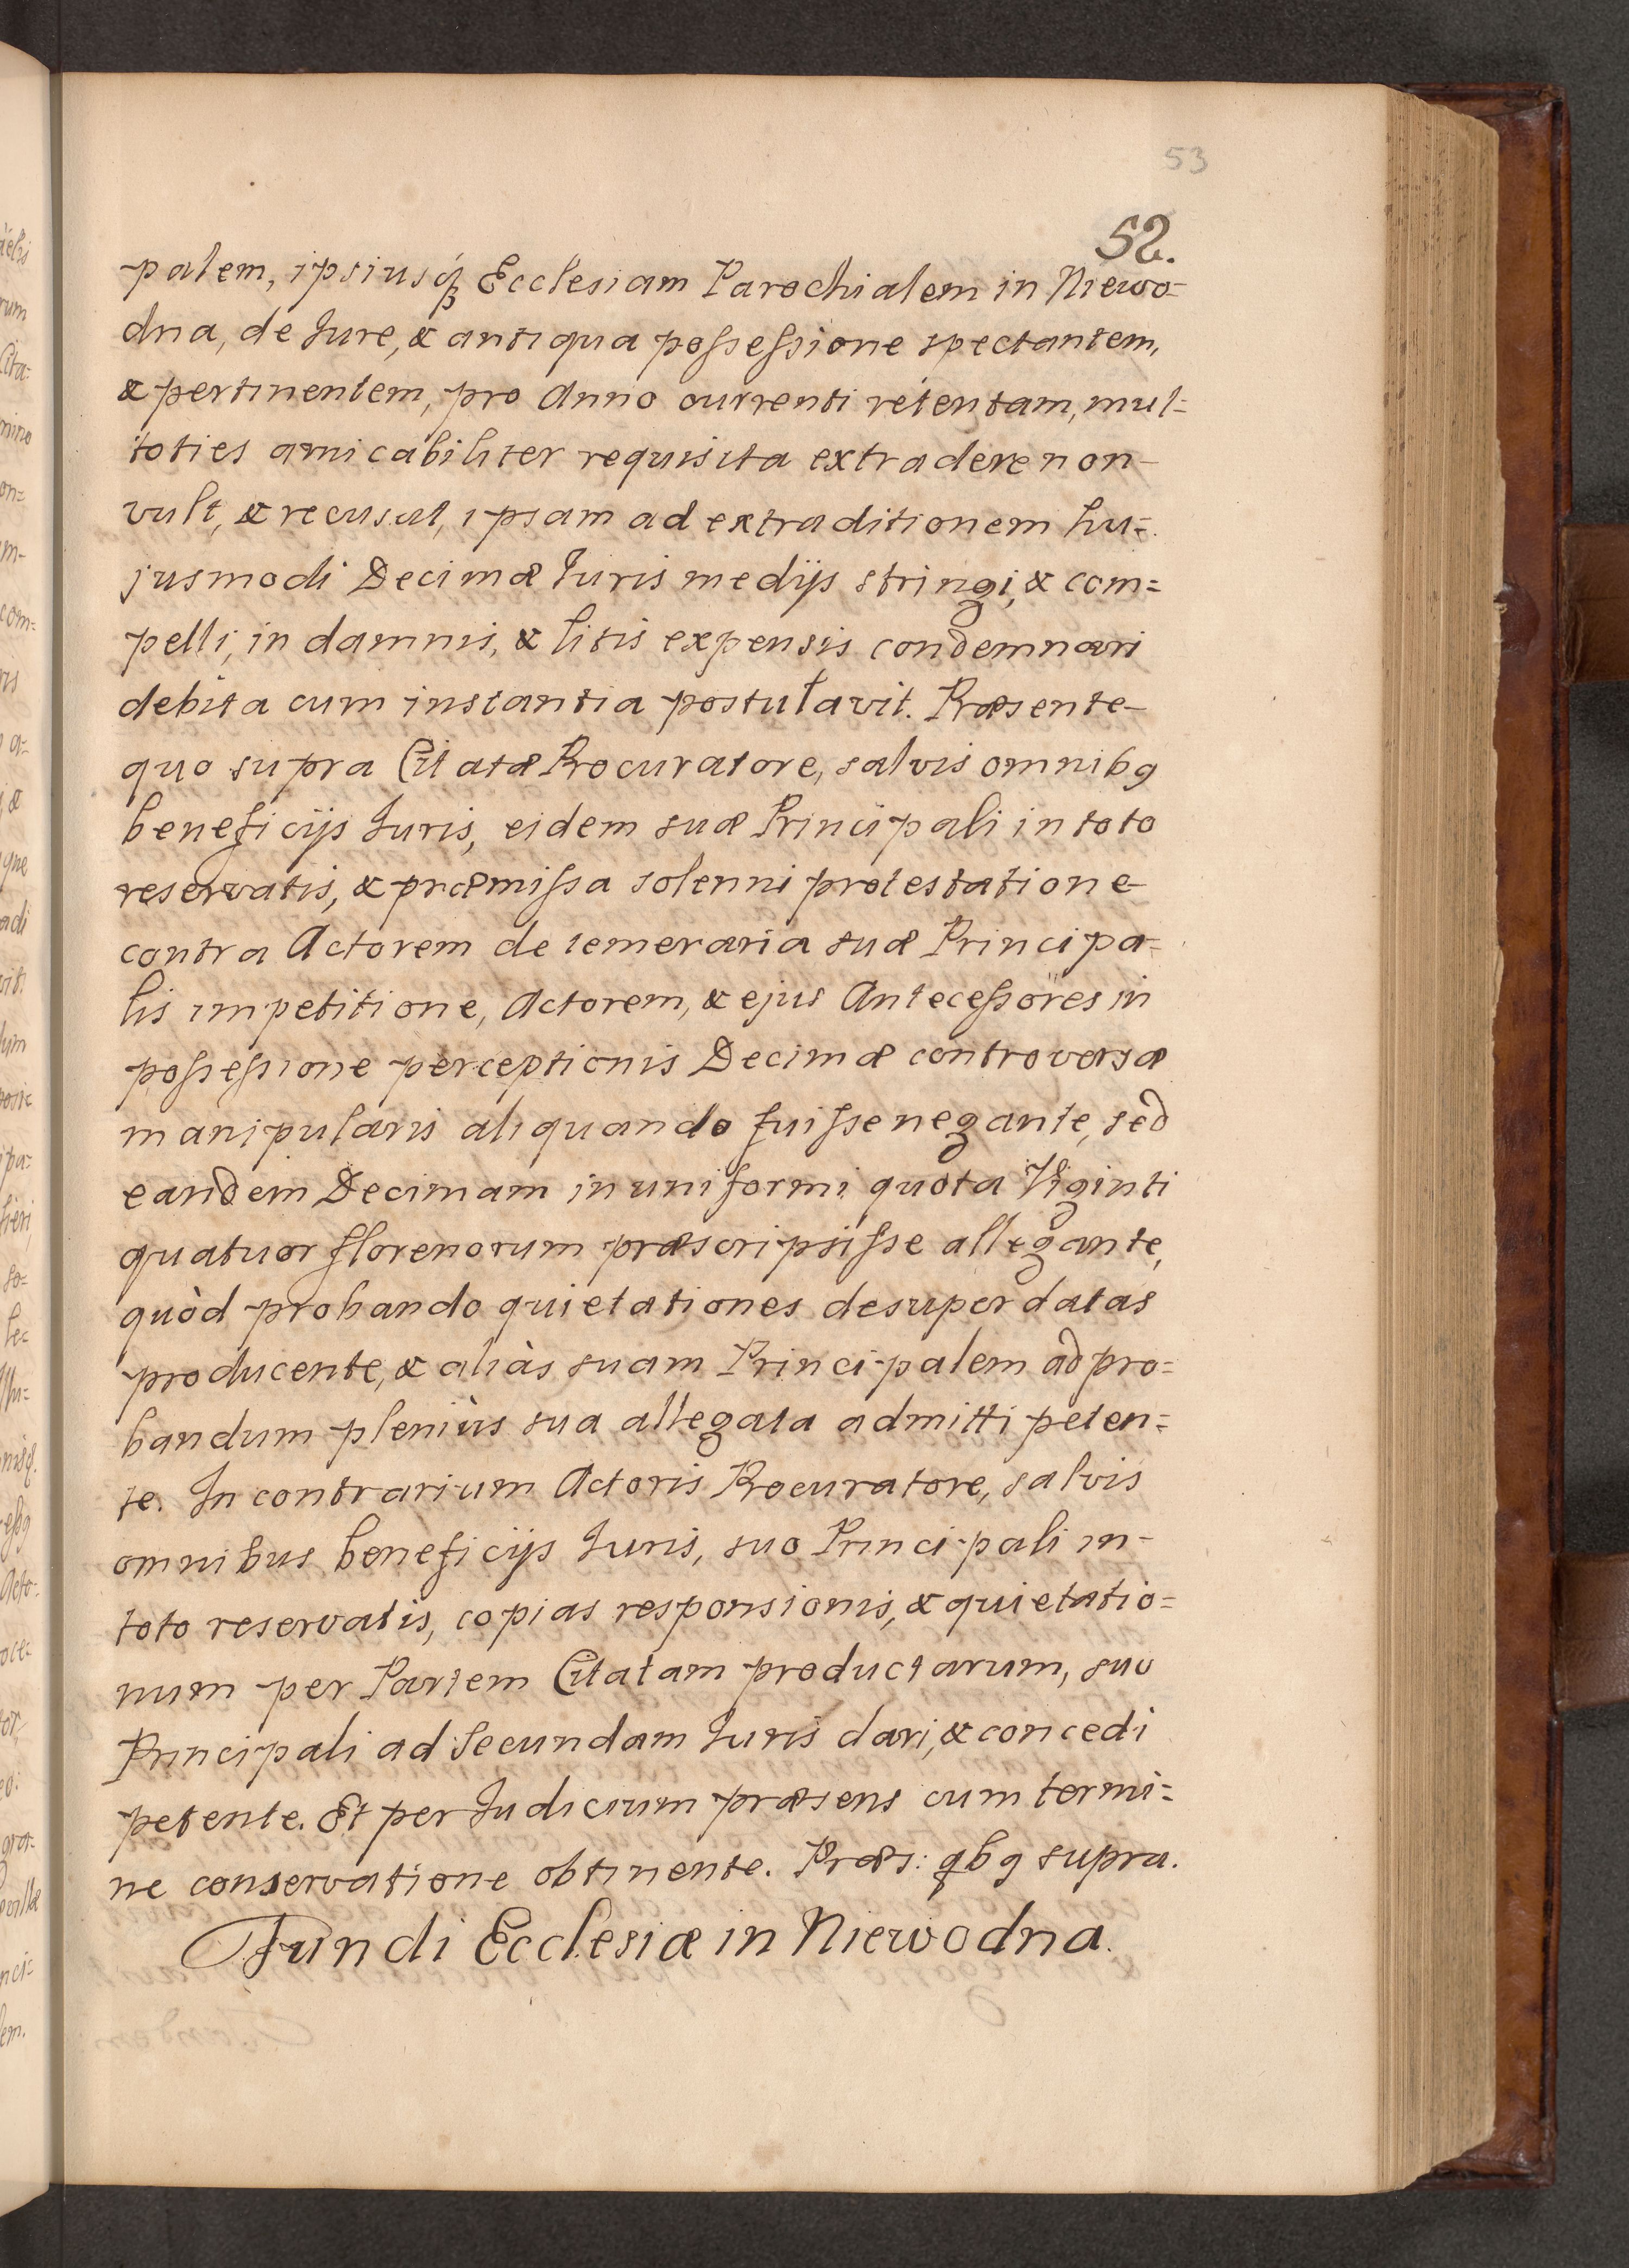 53
52.
palem, ipsiusq́ꝫ Ecclesiam Parochialem in Niewo=
dna, de Jure, & antiqua poſseſsione spectantem,
& pertinentem, pro Anno currenti retentam, mul=
toties amicabiliter requisita extradere non-
vult, & recusat, ipsam ad extraditionem hu=
jusmodi Decimæ Juris medijs stringi, & com=
pelli, in damnis, & litis expensis condemnari
debita cum instantia postulavit. Præsente-
quo supra Citatæ Procuratore, salvis omnibꝰ
beneficijs Juris, eidem suæ Principali in toto
reservatis, & præmiſsa solenni protestatione-
contra Actorem de temeraria suæ Principa=
lis impetitione, Actorem, & ejus Anteceſsores in
poſseſsione perceptionis Decimæ controversæ
manipularis aliquando fuiſse negante, sed
eandem Decimam in uniformi quota Viginti
quatuor florenorum præscripsiſse allegante,
quòd probando quietationes desuper datas
producente, & aliàs suam Principalem ad pro=
bandum pleniùs sua allegata admitti peten=
te. In contrarium Actoris Procuratore, salvis
omnibus beneficijs Juris, suo Principali in-
toto reservatis, copias responsionis, & quietatio=
num per Partem Citatam productarum, suo
Principali ad Secundam Juris dari, & concedi
petente. Et per Judicium præsens cum termi=
ne conservatione obtinente. Præs: qbꝰ supra.
Fundi Ecclesiæ in Niewodna.